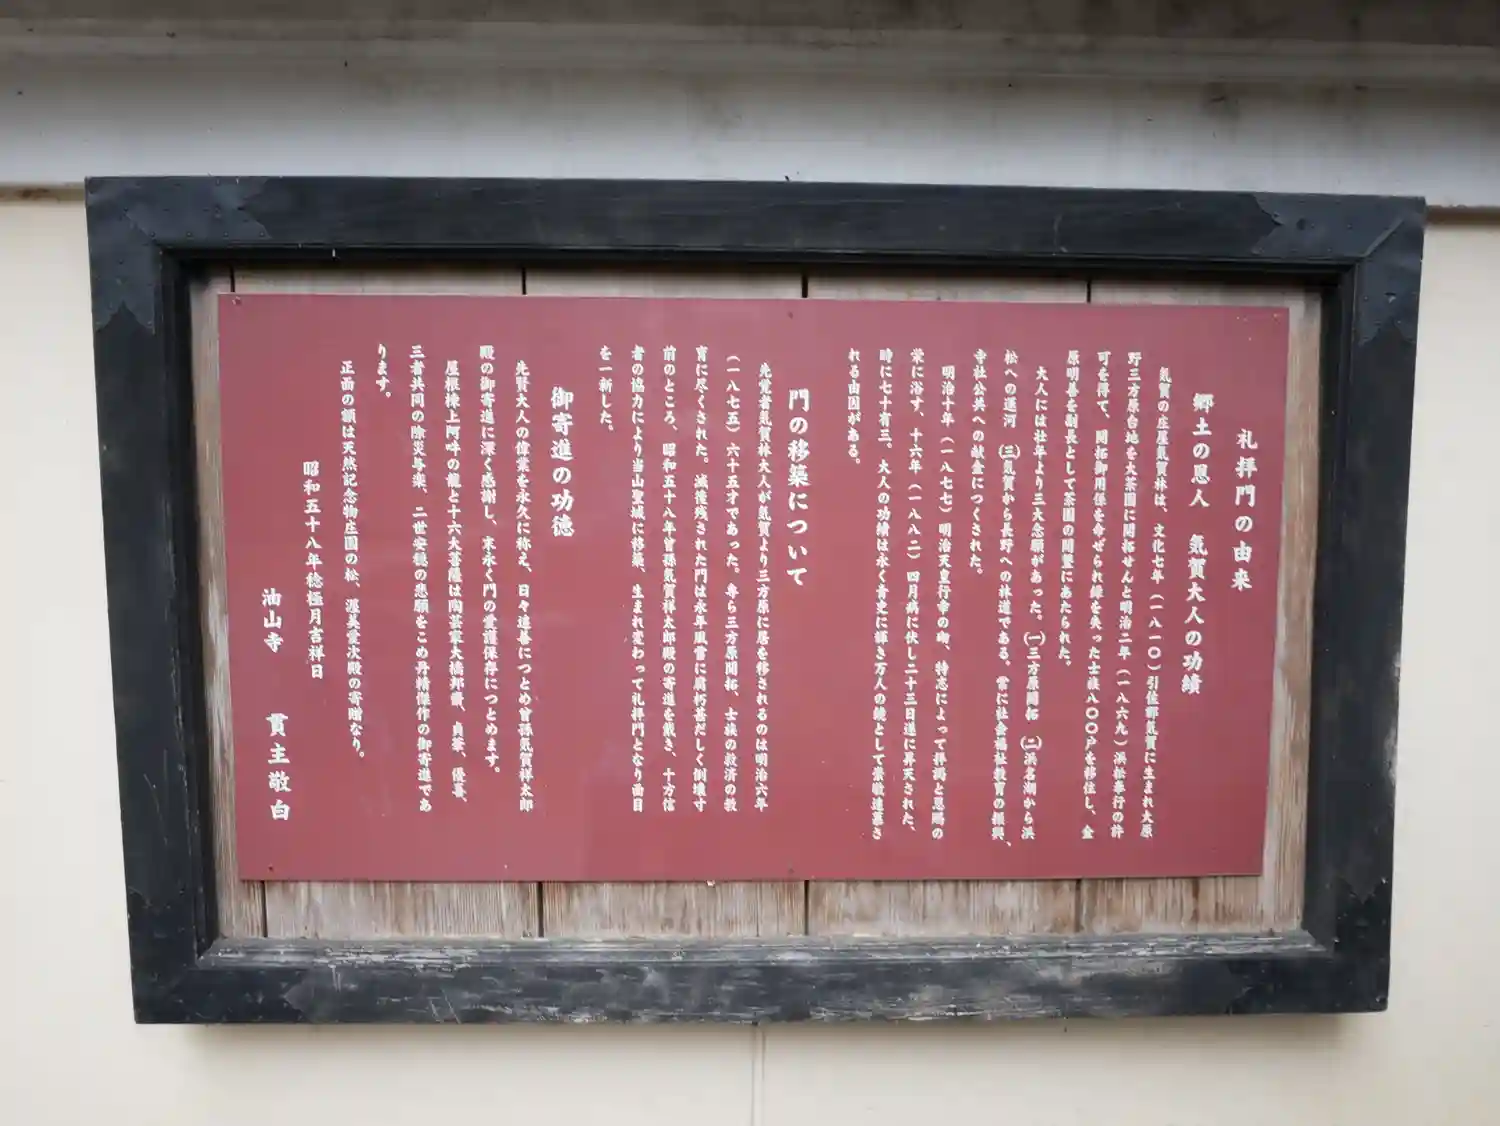 礼拝門の由来
郷土の恩人 氣賀大人の功績
氣賀の庄屋氣賀林は、文化七年(一八一〇)引佐郡氣賀に生まれ大原
野三方原台地を大茶園に開拓せんと明治二年(一八六九)浜松奉行の許
可を得て、開拓御用係を命ぜられ録を失った士族八〇〇戸を移住し、金
原明善を副長として茶園の開墾にあたられた。
大人には壮年より三大念願があった。(一)三方原開拓 (二)浜名湖から浜
松への運河 (三)氣賀から長野への林道である。常に社会福祉教育の振興、
寺社公共への献金につくされた。
明治十年(一八七七)明治天皇行幸の砌、特志によって拝謁と恩賜の
栄に浴す、十六年(一八八二)四月病に伏し二十三日遂に昇天された、
時に七十有三、大人の功績は永く青史に輝き万人の鏡として崇敬追慕さ
れる由因がある。
門の移築について
先覚者氣賀林大人が氣賀より三方原に居を移されるのは明治六年
(一八七五)六十五才であった。専ら三方原開拓、士族の救済の教
育に尽くされた。滅後残された門は永年風雪に腐朽甚だしく倒壊寸
前のところ、昭和五十八年曾孫氣賀祥太郎殿の寄進を戴き、十方信
者の協力により当山聖域に移築、生まれ変わって礼拝門となり面目
を一新した。
御寄進の功徳
先賢大人の偉業を永久に称え、日々追善につとめ曾孫氣賀祥太郎
殿の御寄進に深く感謝し、末永く門の愛護保存につとめます。
屋根棟上阿吽の龍と十六大菩薩は陶芸家大橋邦 、貞 、優喜、
三者共同の除災与楽、二世安穏の悲願をこめ丹精傑作の御寄進であ
ります。
正面の額は天然記念物庄園の松、渥美愛次殿の寄贈なり。
昭和五十八年稔極月吉祥日
油山寺 貫主敬白